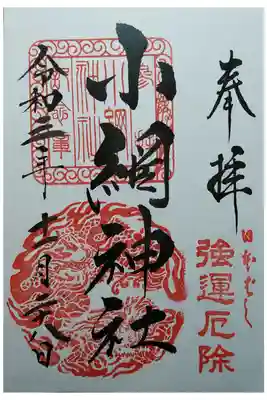 奉拝
強運厄除
小網神社
令和三年十一月二八日